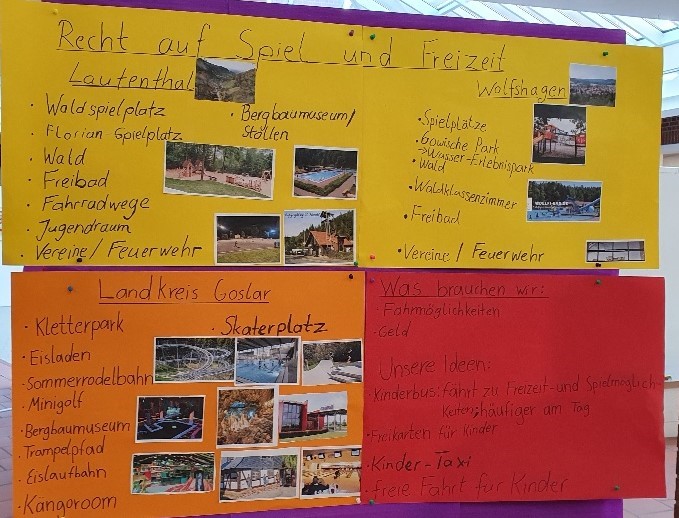 Recht auf Spiel und Freizeit
Lautenthal
· Waldspielplatz
· Florian Spielplatz
· Wald
· Freibad
· Fahrradwege
· Jugendraum
· Vereine / Feuerwehr
· Bergbaumuseum/
Stollen
Wolfshagen
· Spielplätze
· Gowische Park
→ Wasser-Erlebnispark
· Wald
· Waldklassenzimmer
· Freibad
· Vereine / Feuerwehr
Landkreis Goslar
· Kletterpark
· Eisladen
· Sommerrodelbahn
· Minigolf
· Bergbaumuseum
· Trampelpfad
· Eislaufbahn
· Kängoroom
· Skaterplatz
Was brauchen wir:
· Fahrmöglichkeiten
· Geld
Unsere Ideen:
· Kinderbus: fährt zu Freizeit- und Spielmöglich-
keiten; häufiger am Tag
· Freikarten für Kinder
· Kinder-Taxi
· freie Fahrt für Kinder